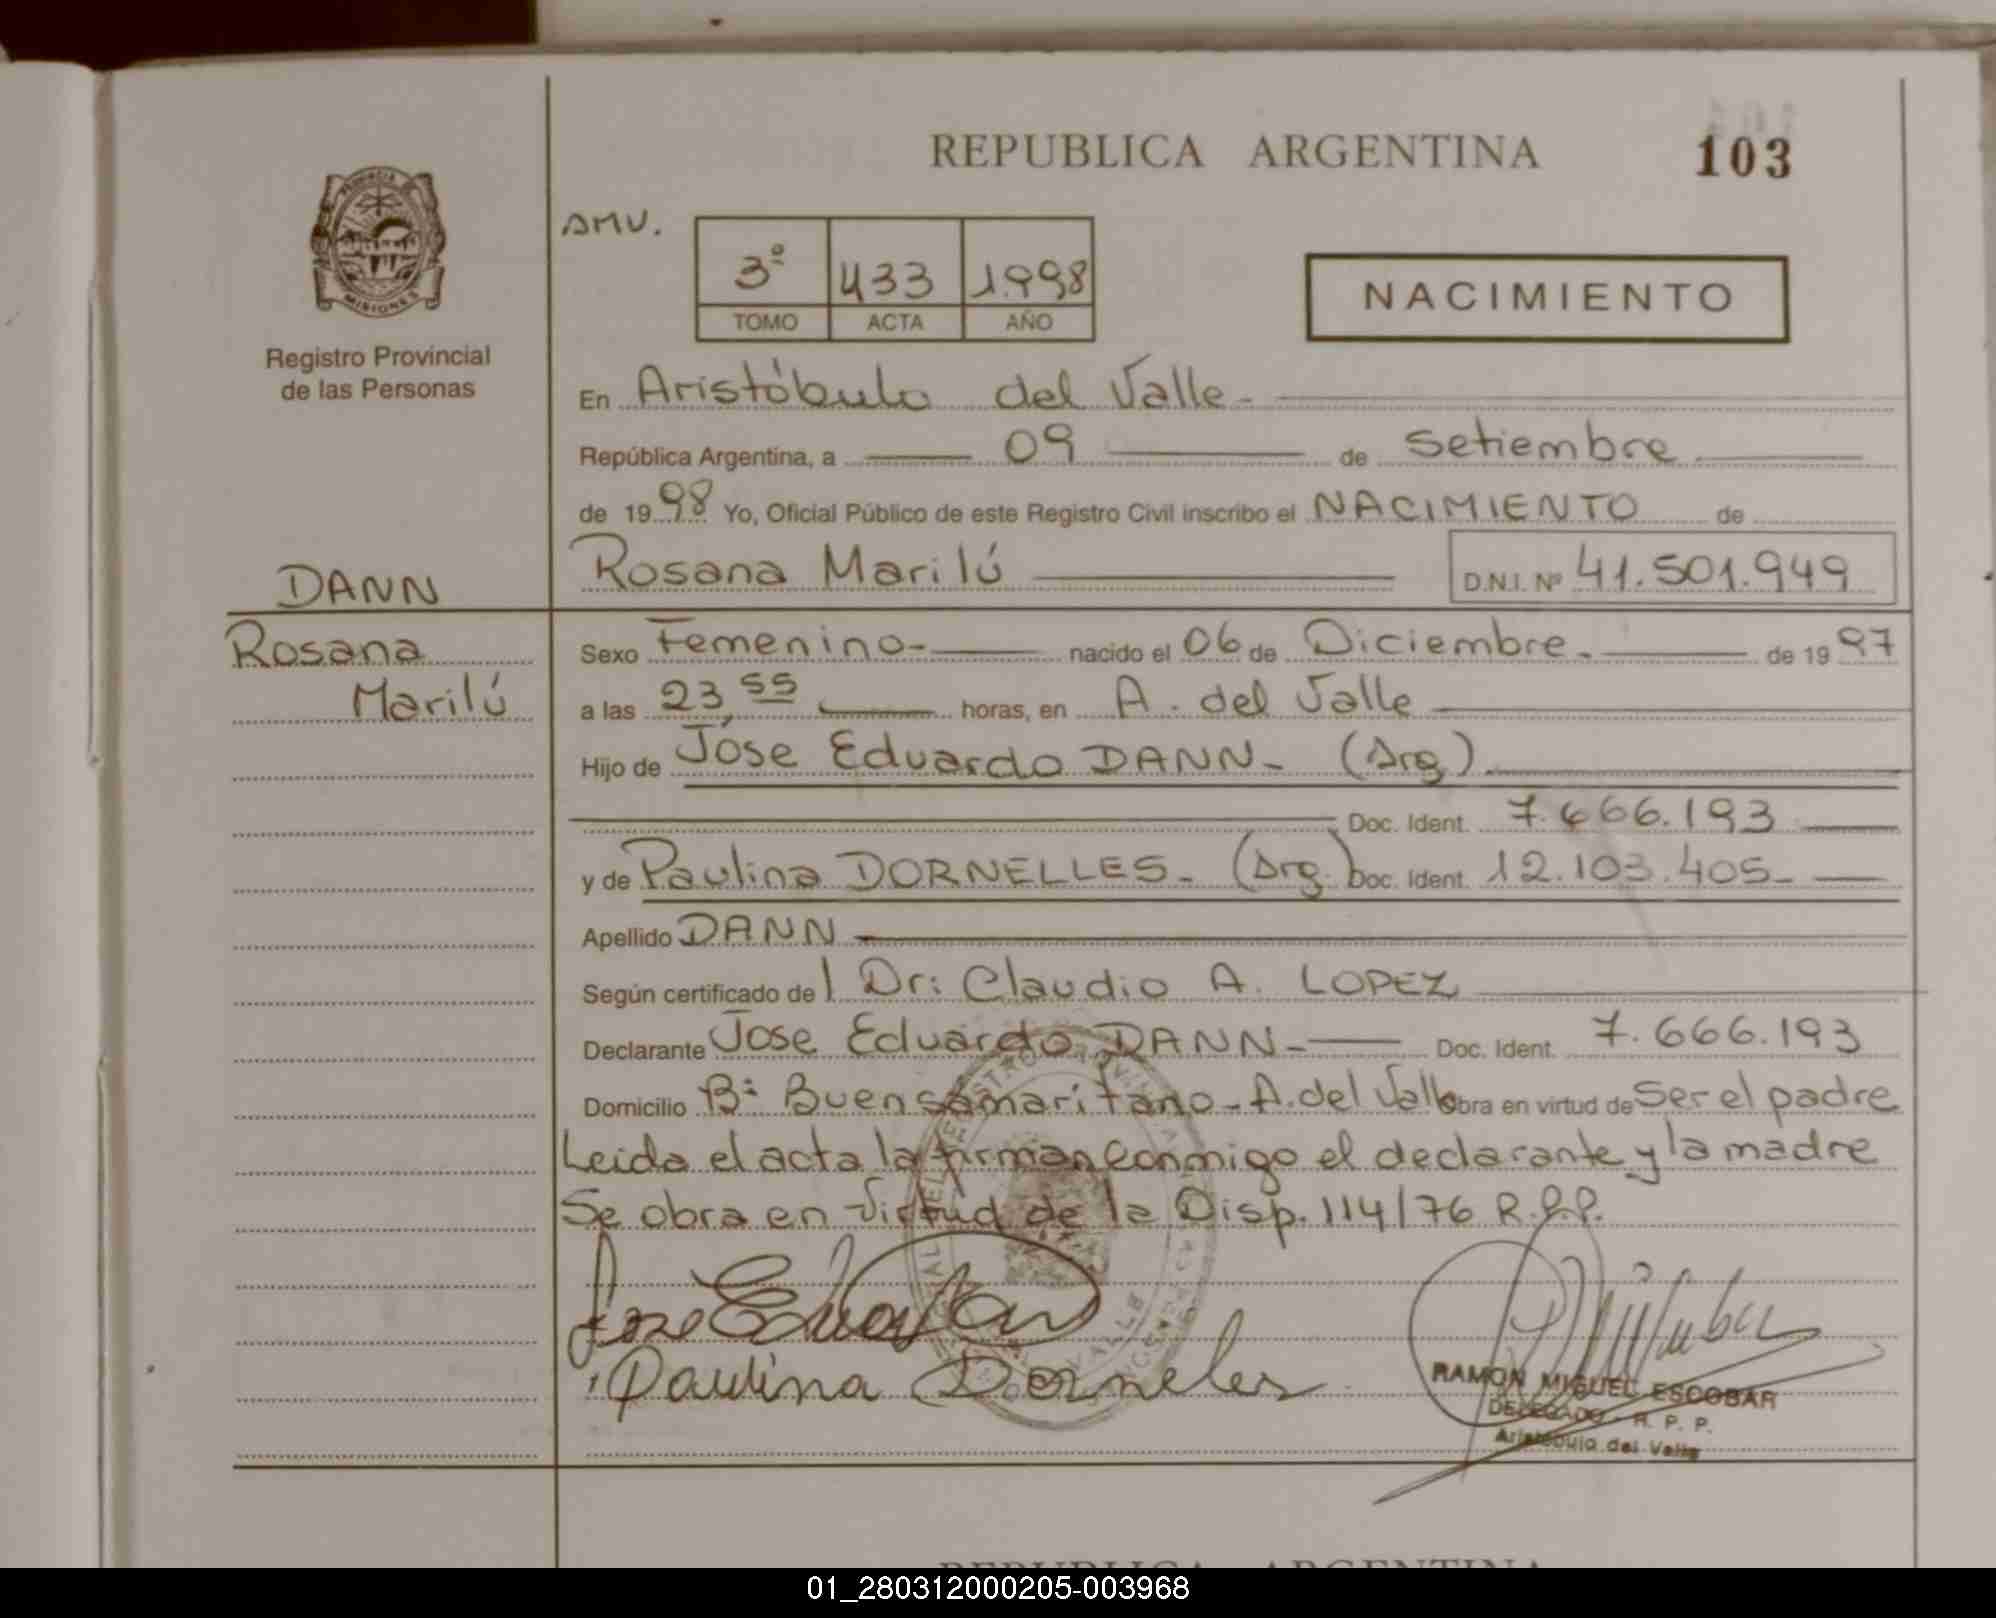 REPUBLICA ARGENTINA 103
PROVINCIA DE
MISIONES
Registro Provincial
de las Personas
AMV.
3º 433 1998
TOMO ACTA AÑO
NACIMIENTO
En Aristóbulo del Valle-
República Argentina, a 09 de Setiembre
de 1998 Yo, Oficial Público de este Registro Civil inscribo el NACIMIENTO de
Rosana Marilú D.N.I. Nº 41.501.949
DANN
Rosana
Marilú
Sexo Femenino- nacido el 06 de Diciembre. de 1997
a las 23,55 horas, en A. del Valle
Hijo de Jose Eduardo DANN- (Arg)
Doc. Ident. 7.666.193
y de Paulina DORNELLES- (Arg.) Doc. Ident. 12.103.405-
Apellido DANN
Según certificado de l Dr: Claudio A. LOPEZ
Declarante Jose Eduardo DANN- Doc. Ident. 7.666.193
Domicilio Bº Buen samaritano- A. del Valle obra en virtud de Ser el padre
Leida el acta la firman conmigo el declarante y la madre
Se obra en virtud de la Disp. 114/76 R.P.P.
Jose Eduardo Dann
Paulina Dorneles
RAMON MIGUEL ESCOBAR
DELEGADO - R. P. P.
Aristóbulo del Valle
REPUBLICA ARGENTINA
01_280312000205-003968